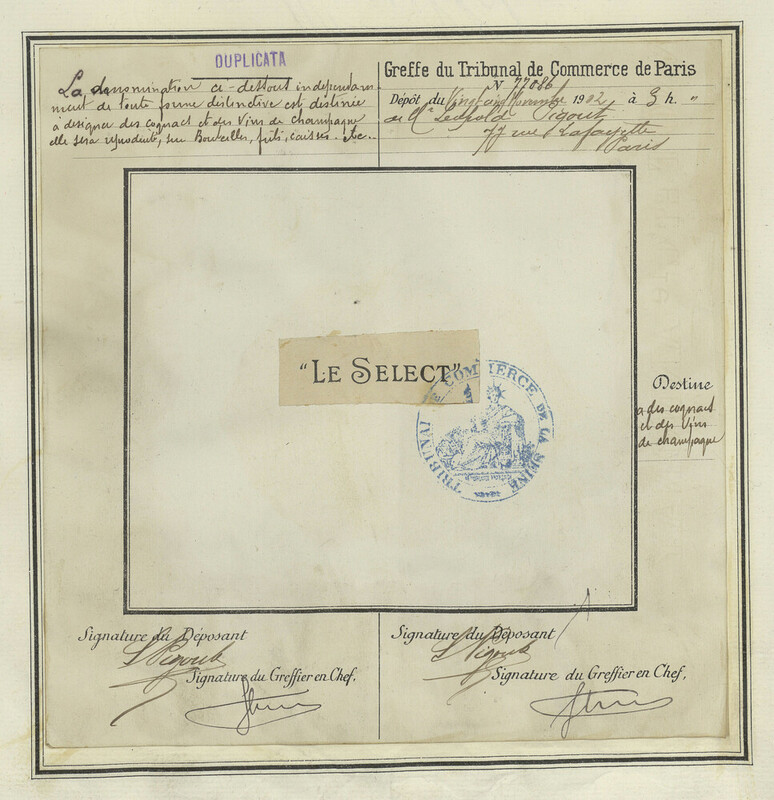 DUPLICATA
La dénomination ci-dessous indépendam-
ment de toute forme distinctive est destinée
à designer des cognacs et des Vins de champagne
elle sera reproduite, sur Bouteilles, fûts, caisses. etc..
Greffe du Tribunal de Commerce de Paris
N 77086
Dépôt du Vingt cinq Novembre 1902 à 3 h. "
de Mr Léopold Pigout
77 rue Lafayette
Paris
"LE SELECT"
TRIBUNAL DE COMMERCE DE LA SEINE
Destine
a des cognacs
et des Vins
de champagne
Signature du Déposant
L Pigout
Signature du Greffier en Chef,
Signature du Déposant
L Pigout
Signature du Greffier en Chef,